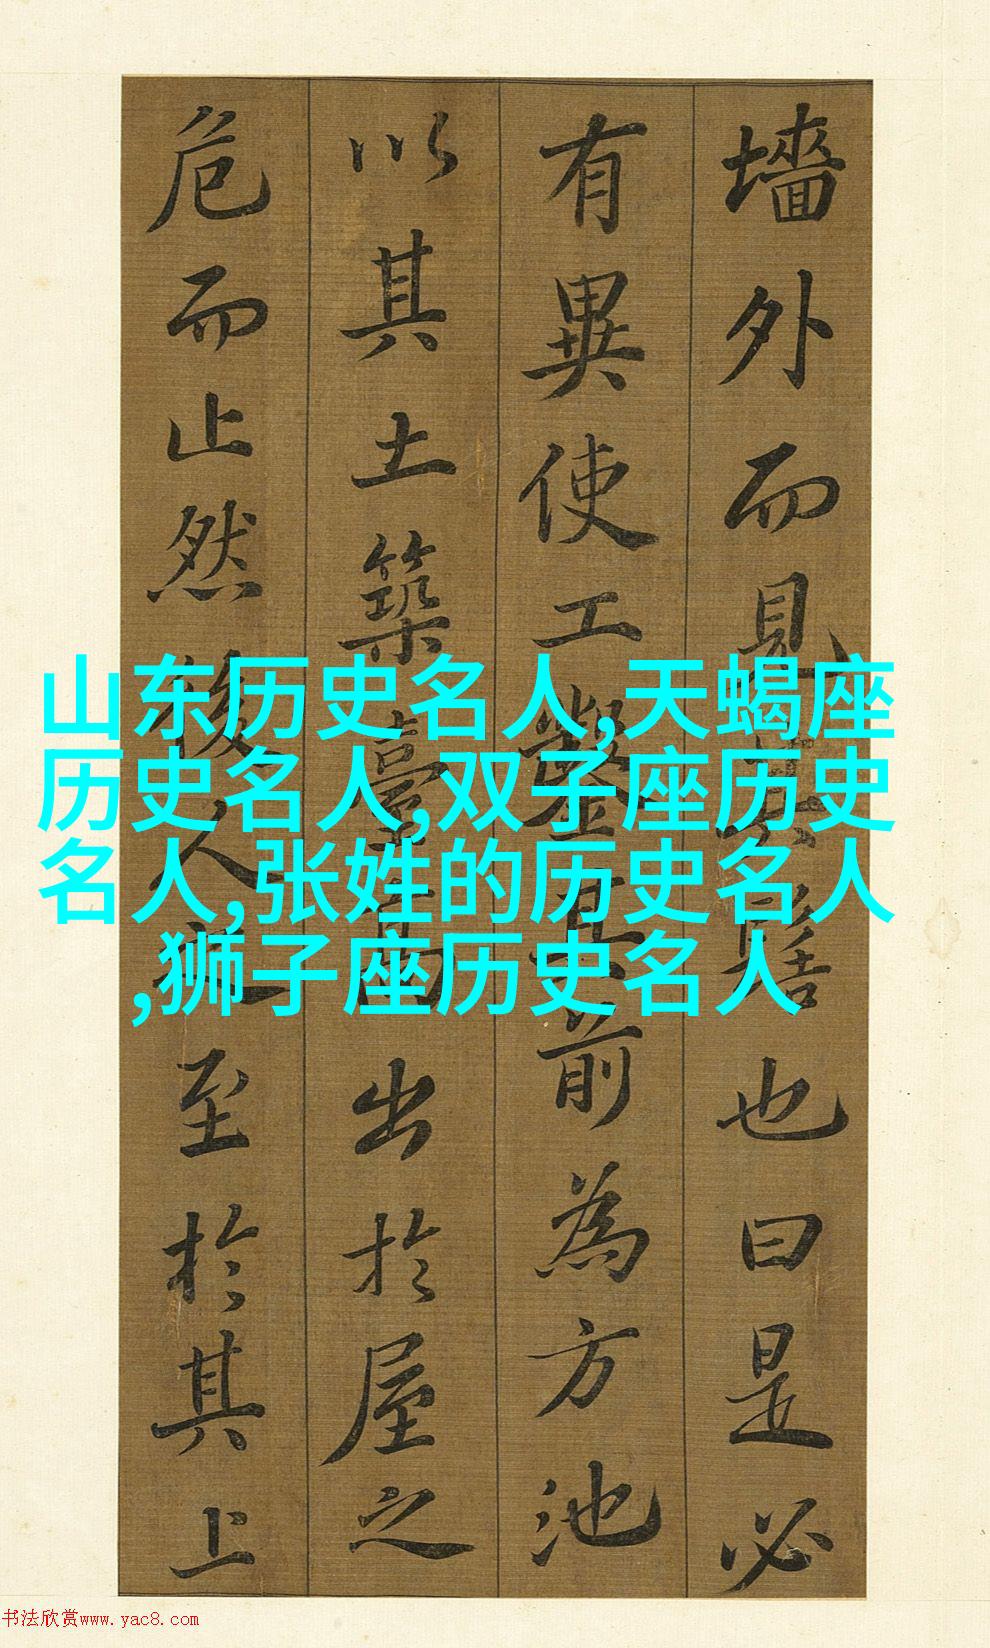 墻外而見其髻也曰是必
有異使工鑿其前為方池
以其土築臺高出於屋之
危而止然後人之至於其上
山东历史名人,天蝎座
历史名人,双子座历史
名人,张姓的历史名人
,狮子座历史名人
书法欣赏www.yac8.com